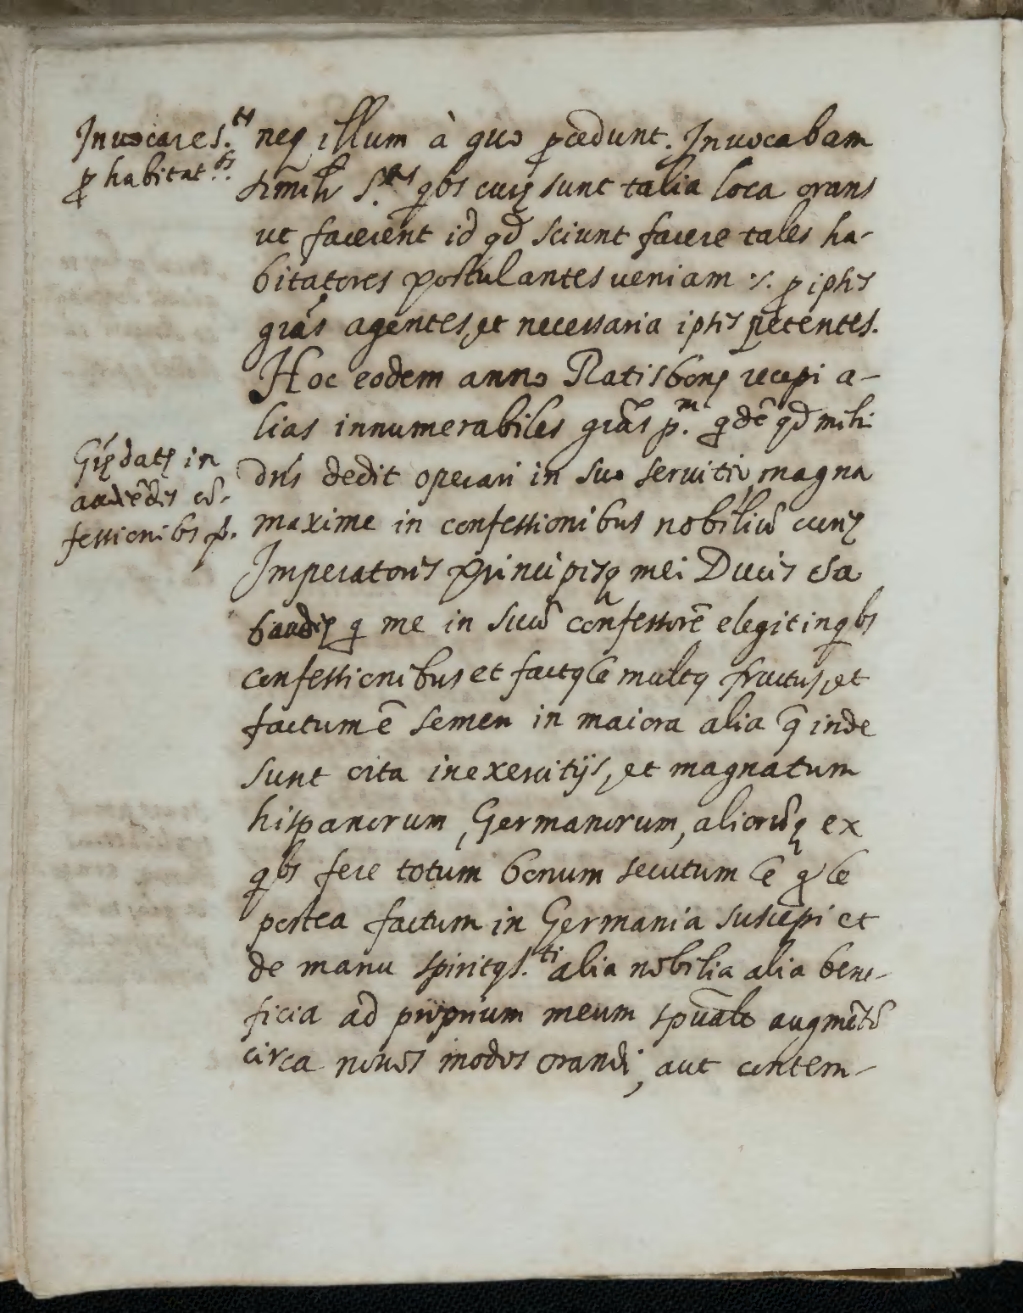 Inuocare s.tos
ꝓ habitat.bs.
neq illum à quo ꝓcedunt. Inuocabam
simílr S.tos qbs cuiꝫ sunt talia loca orans
ut facerent id qd̃ sciunt facere tales ha-
bitatores postulantes ueniam &. ꝓ ipsis
grãs agentes, et necessaria ipsis petentes.
Hoc eodem anno Ratisbonę recepi a-
lias innumerabiles grãs p.m q̃dẽ qd̃ mihi
Grę datę in
audiẽdis cõ-
fessionibs p.
dñs dedit operari in suo seruitio magna
maxime in confessionibus nobiliũ curię
Imperatoris principisq mei Ducis Sa
baudię q me in suũ confessorẽ elegit in qbs
confessionibus et factqs ẽ multqs fructus, et
factum ẽ semen in maiora alia q̃ inde
sunt orta in exercitijs, et magnatum
hispanorum, Germanorum, aliorũq ex
qbs fere totum bonum secutum ẽ qd ẽ
postea factum in Germania suscepi et
de manu spiritqs S.ti alia nobilia alia bene-
ficia ad proprium meum spũale augmẽtũ
circa nouos modos orandi, aut contem-